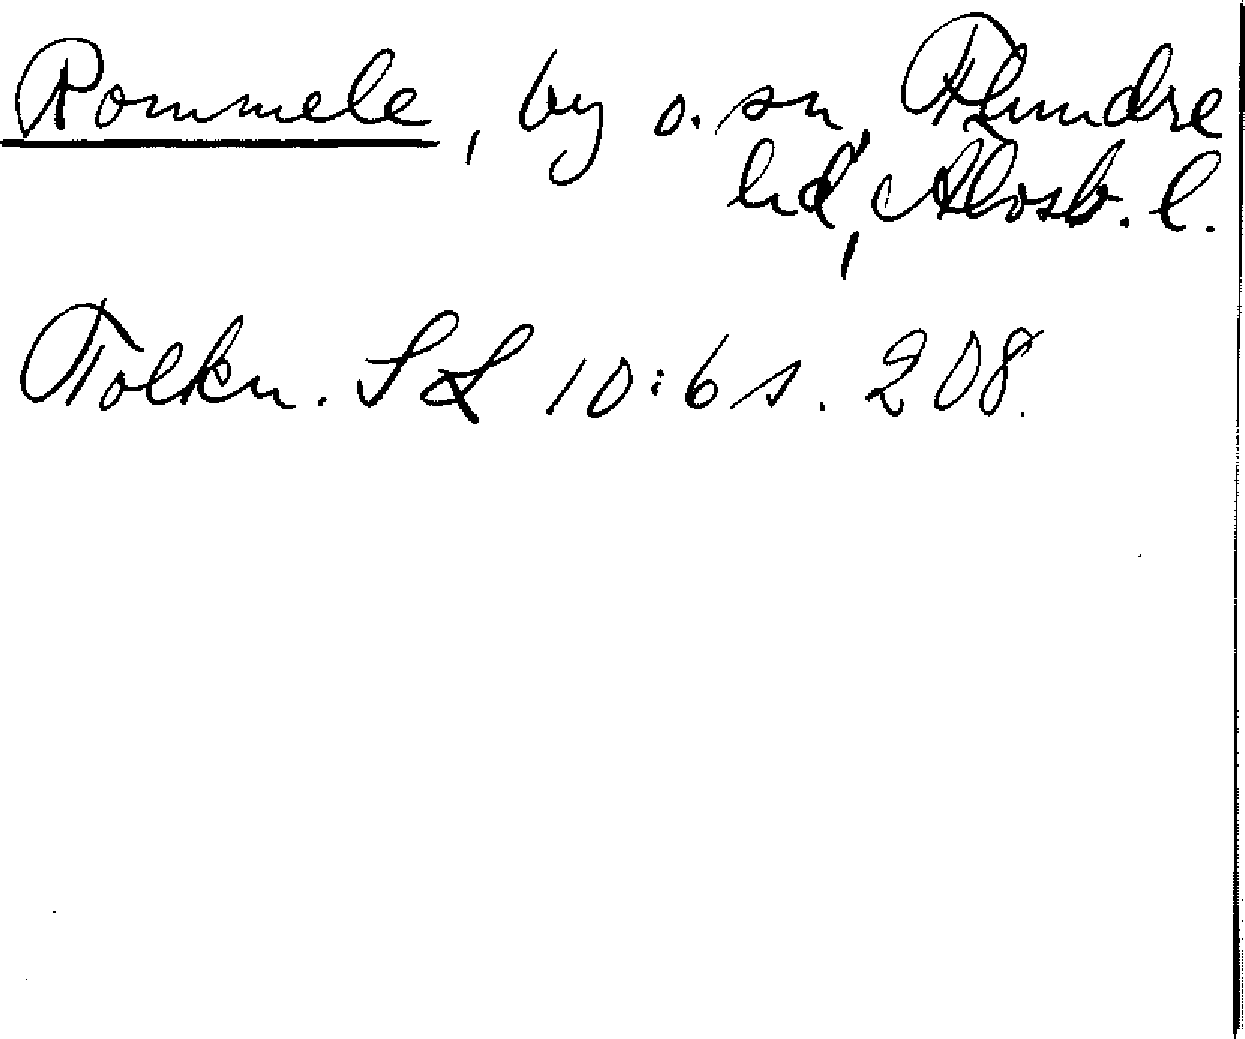 Rommele, by o. sn, Flundre
hd, Älvsb. l.
Tolkn. SL 10:6 s. 208.